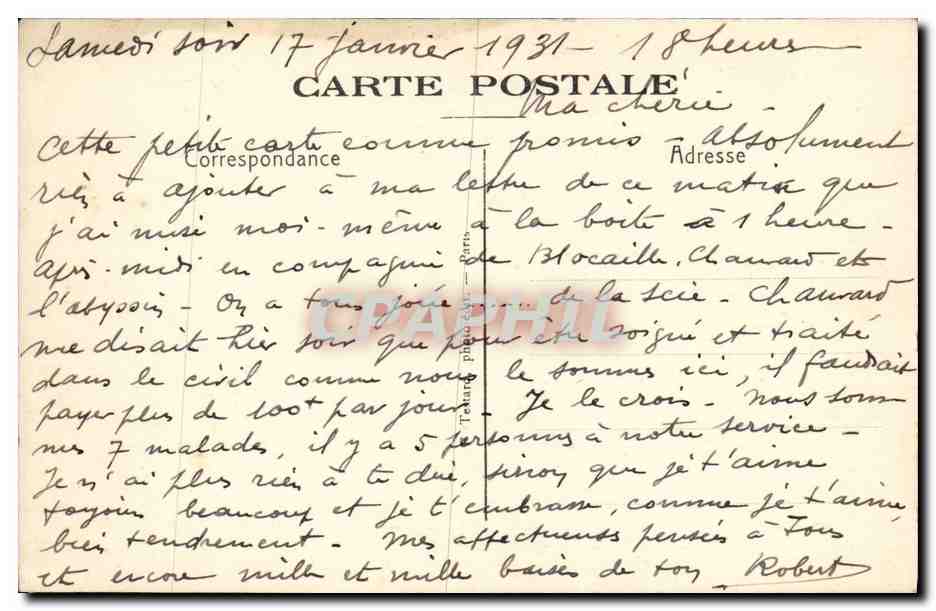 Samedi soir 17 janvier 1931 - 18 heures
CARTE POSTALE
Ma chérie -
Cette petite carte comme promis - Absolument
Correspondance
Adresse
rien à ajouter à ma lettre de ce matin que
j'ai mise moi-même à la boite à 1 heure -
après-midi en compagnie de Blocaille, Chauvard et
l'abyssin - On a tous joué ..... de la scie - Chauvard
CPAPHIL
me disait hier soir que pour être soigné et traité
dans le civil comme nous le sommes ici, il faudrait
payer plus de 100f par jour - Je le crois - Nous som-
mes 7 malades, il y a 5 personnes à notre service -
Je n'ai plus rien à te dire, sinon que je t'aime
toujours beaucoup et je t'embrasse, comme je t'aime,
bien tendrement - Mes affectueuses pensées à Tous
et encore mille et mille baisers de ton Robert
Testard, photo édit. — Paris